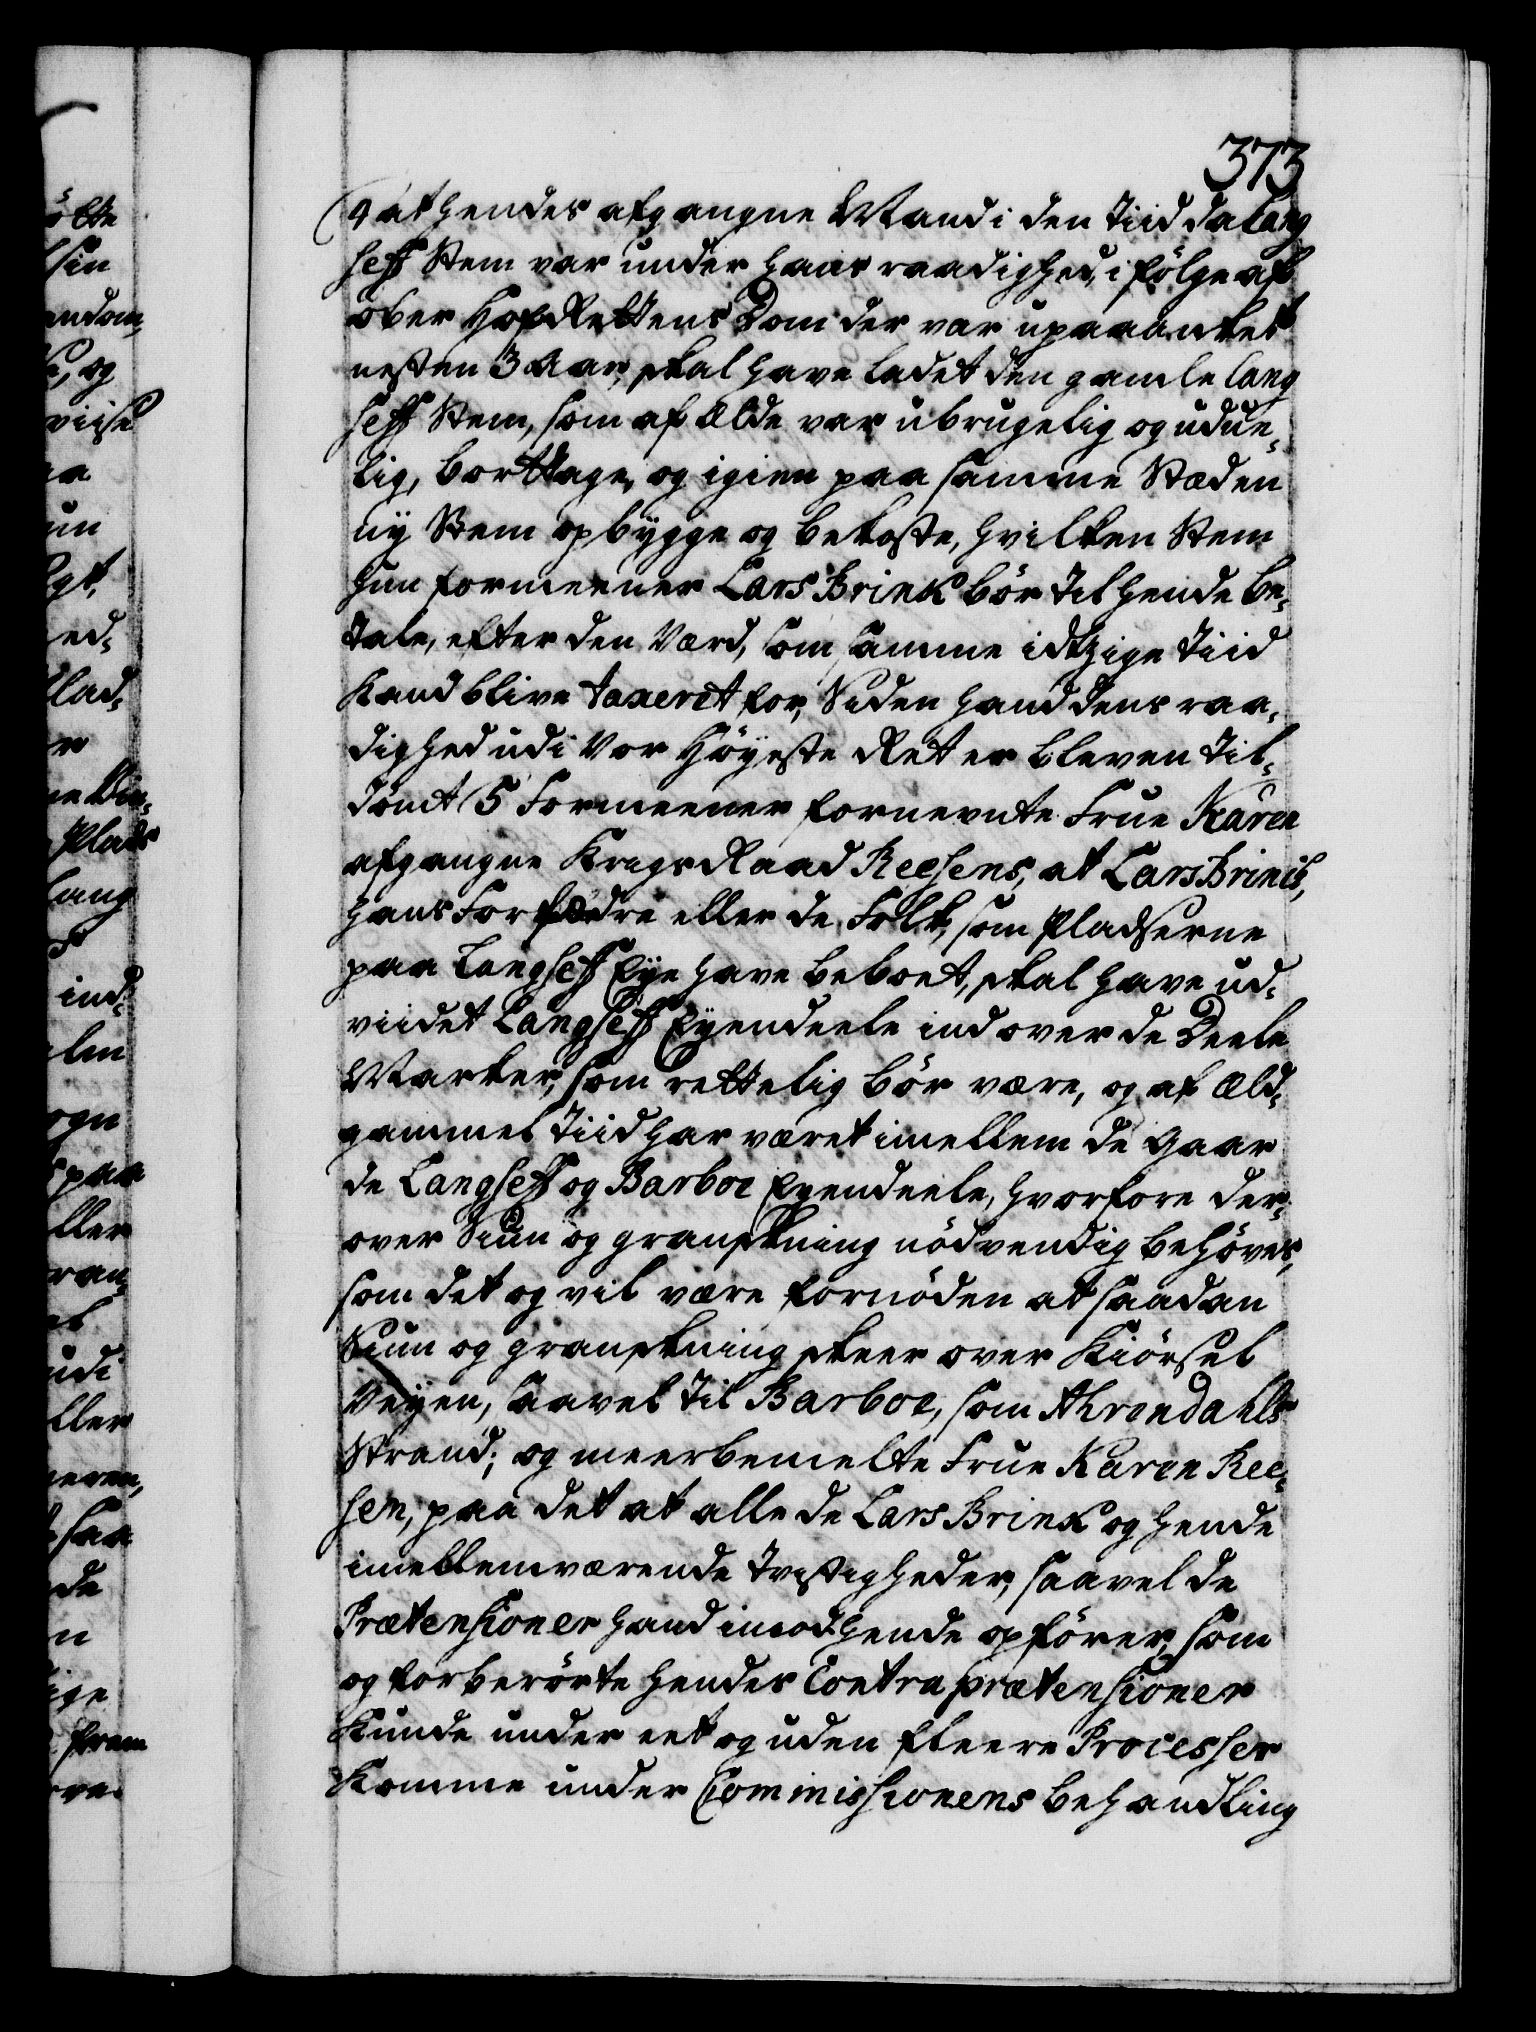 373
(4 at hendes afgangne Mand i den Tiid da Lang
seff Stem var under hans raadighed, i fölge af
Ober Hof Rettens Dom der var upaaanket
nesten 3 Aar, skal have ladet den gamle Lang
seff Stem, som af Ælde var ubrugelig og udue,
lig, borttage, og igien paa samme Stæden
ny Stem opbygge og bekoste, hvilken Stem
hun formeener Lars Brink bör til hende be,
tale, efter den Værd, som samme idtzige Tiid
kand blive taxeret for, Siden hand dens raa,
dighed udi Vor Höyeste Ret er bleven til,
dömt (5 Formeener fornevnte Frue Karen
afgangne Krigs Raad Reesens, at Lars Brinck,
hans Forfædre eller de Folk, som Pladserne
paa Langseff Eye have beboet, skal have ud,
viidet Langseff Eyendeele ind over de Deele
Marker, som rettelig bör være, og af Æld,
gammel Tiid har været imellem de Gaar
de Langseff og Barboe Eyendeele, hvorfore der,
over Siun og granskning nödvendig behöves,
som det og vil være fornöden at saadan
Siun og granskning skeer over Kiörsel
Veyen, saavel til Barboe, som Ahrendahls
Strand; og meerbemelte Frue Karen Ree,
sen, paa det at alle de Lars Brink og hende
imellemværende Tvistigheder, saavel de
Prætensioner hand imod hende opförer, som
og forberörte hendes Contra prætensioner
kunde under eet og uden fleere Processer
komme under Commissionens behandling